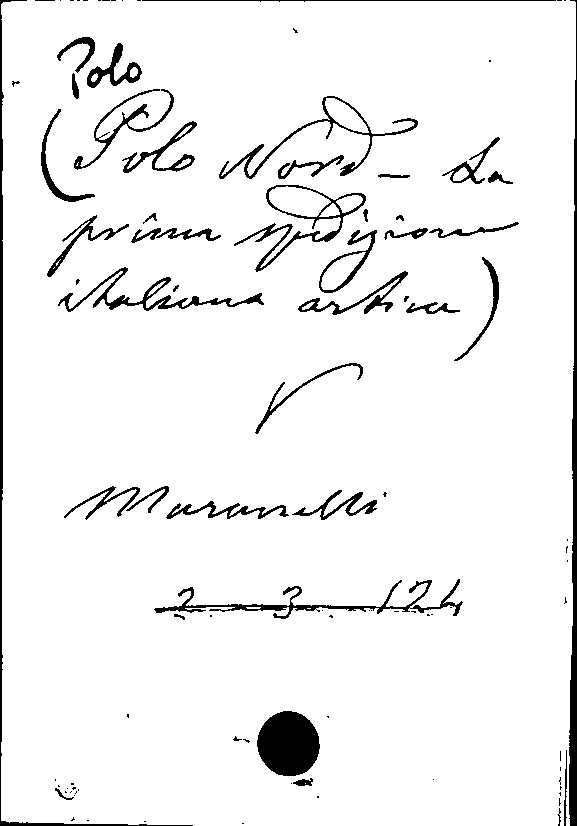 Polo
(Polo Nord - La
prima spedizione
italiana artica)
V
Maranelli
2 3 124